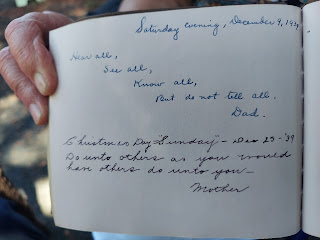 Saturday evening, December 9, 1939
Hear all,
See all,
Know all,
But do not tell all.
Dad.
Christmas Day "Sunday" - Dec 25 - '39
Do unto others as you would
have others do unto you -
Mother